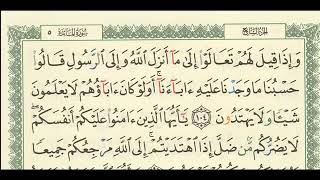 الجزء السابع
سورة المائدة ٥
وَإِذَا قِيلَ لَهُمْ تَعَالَوْا۟ إِلَىٰ مَآ أَنزَلَ ٱللَّهُ وَإِلَى ٱلرَّسُولِ قَالُوا۟
حَسْبُنَا مَا وَجَدْنَا عَلَيْهِ ءَابَآءَنَآ ۚ أَوَلَوْ كَانَ ءَابَآؤُهُمْ لَا يَعْلَمُونَ
شَيْـًٔا وَلَا يَهْتَدُونَ ١٠٤ يَـٰٓأَيُّهَا ٱلَّذِينَ ءَامَنُوا۟ عَلَيْكُمْ أَنفُسَكُمْ ۖ
لَا يَضُرُّكُم مَّن ضَلَّ إِذَا ٱهْتَدَيْتُمْ ۚ إِلَى ٱللَّهِ مَرْجِعُكُمْ جَمِيعًا